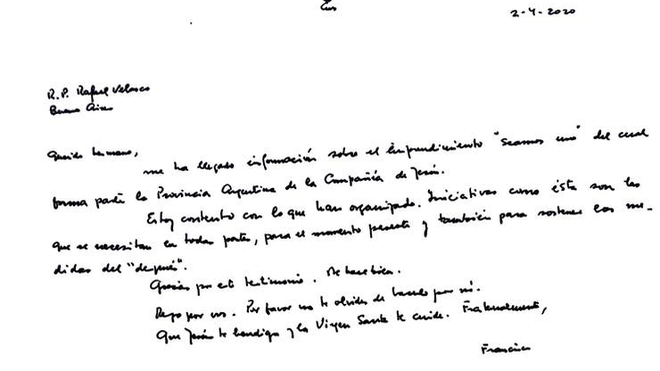 2-4-2020
R.P. Rafael Velasco
Buenos Aires
Querido hermano,
me ha llegado información sobre el Emprendimiento "Seamos uno" del cual
forma parte la Provincia Argentina de la Compañía de Jesús.
Estoy contento con lo que han organizado. Iniciativas como ésta son las
que se necesitan en todas partes, para el momento presente y también para sostener las me-
didas del "después".
Gracias por este testimonio. Me hace bien.
Rezo por vos. Por favor no te olvides de hacerlo por mí.
Que Jesús te bendiga y la Virgen Santa te cuide. Fraternalmente,
Francisco